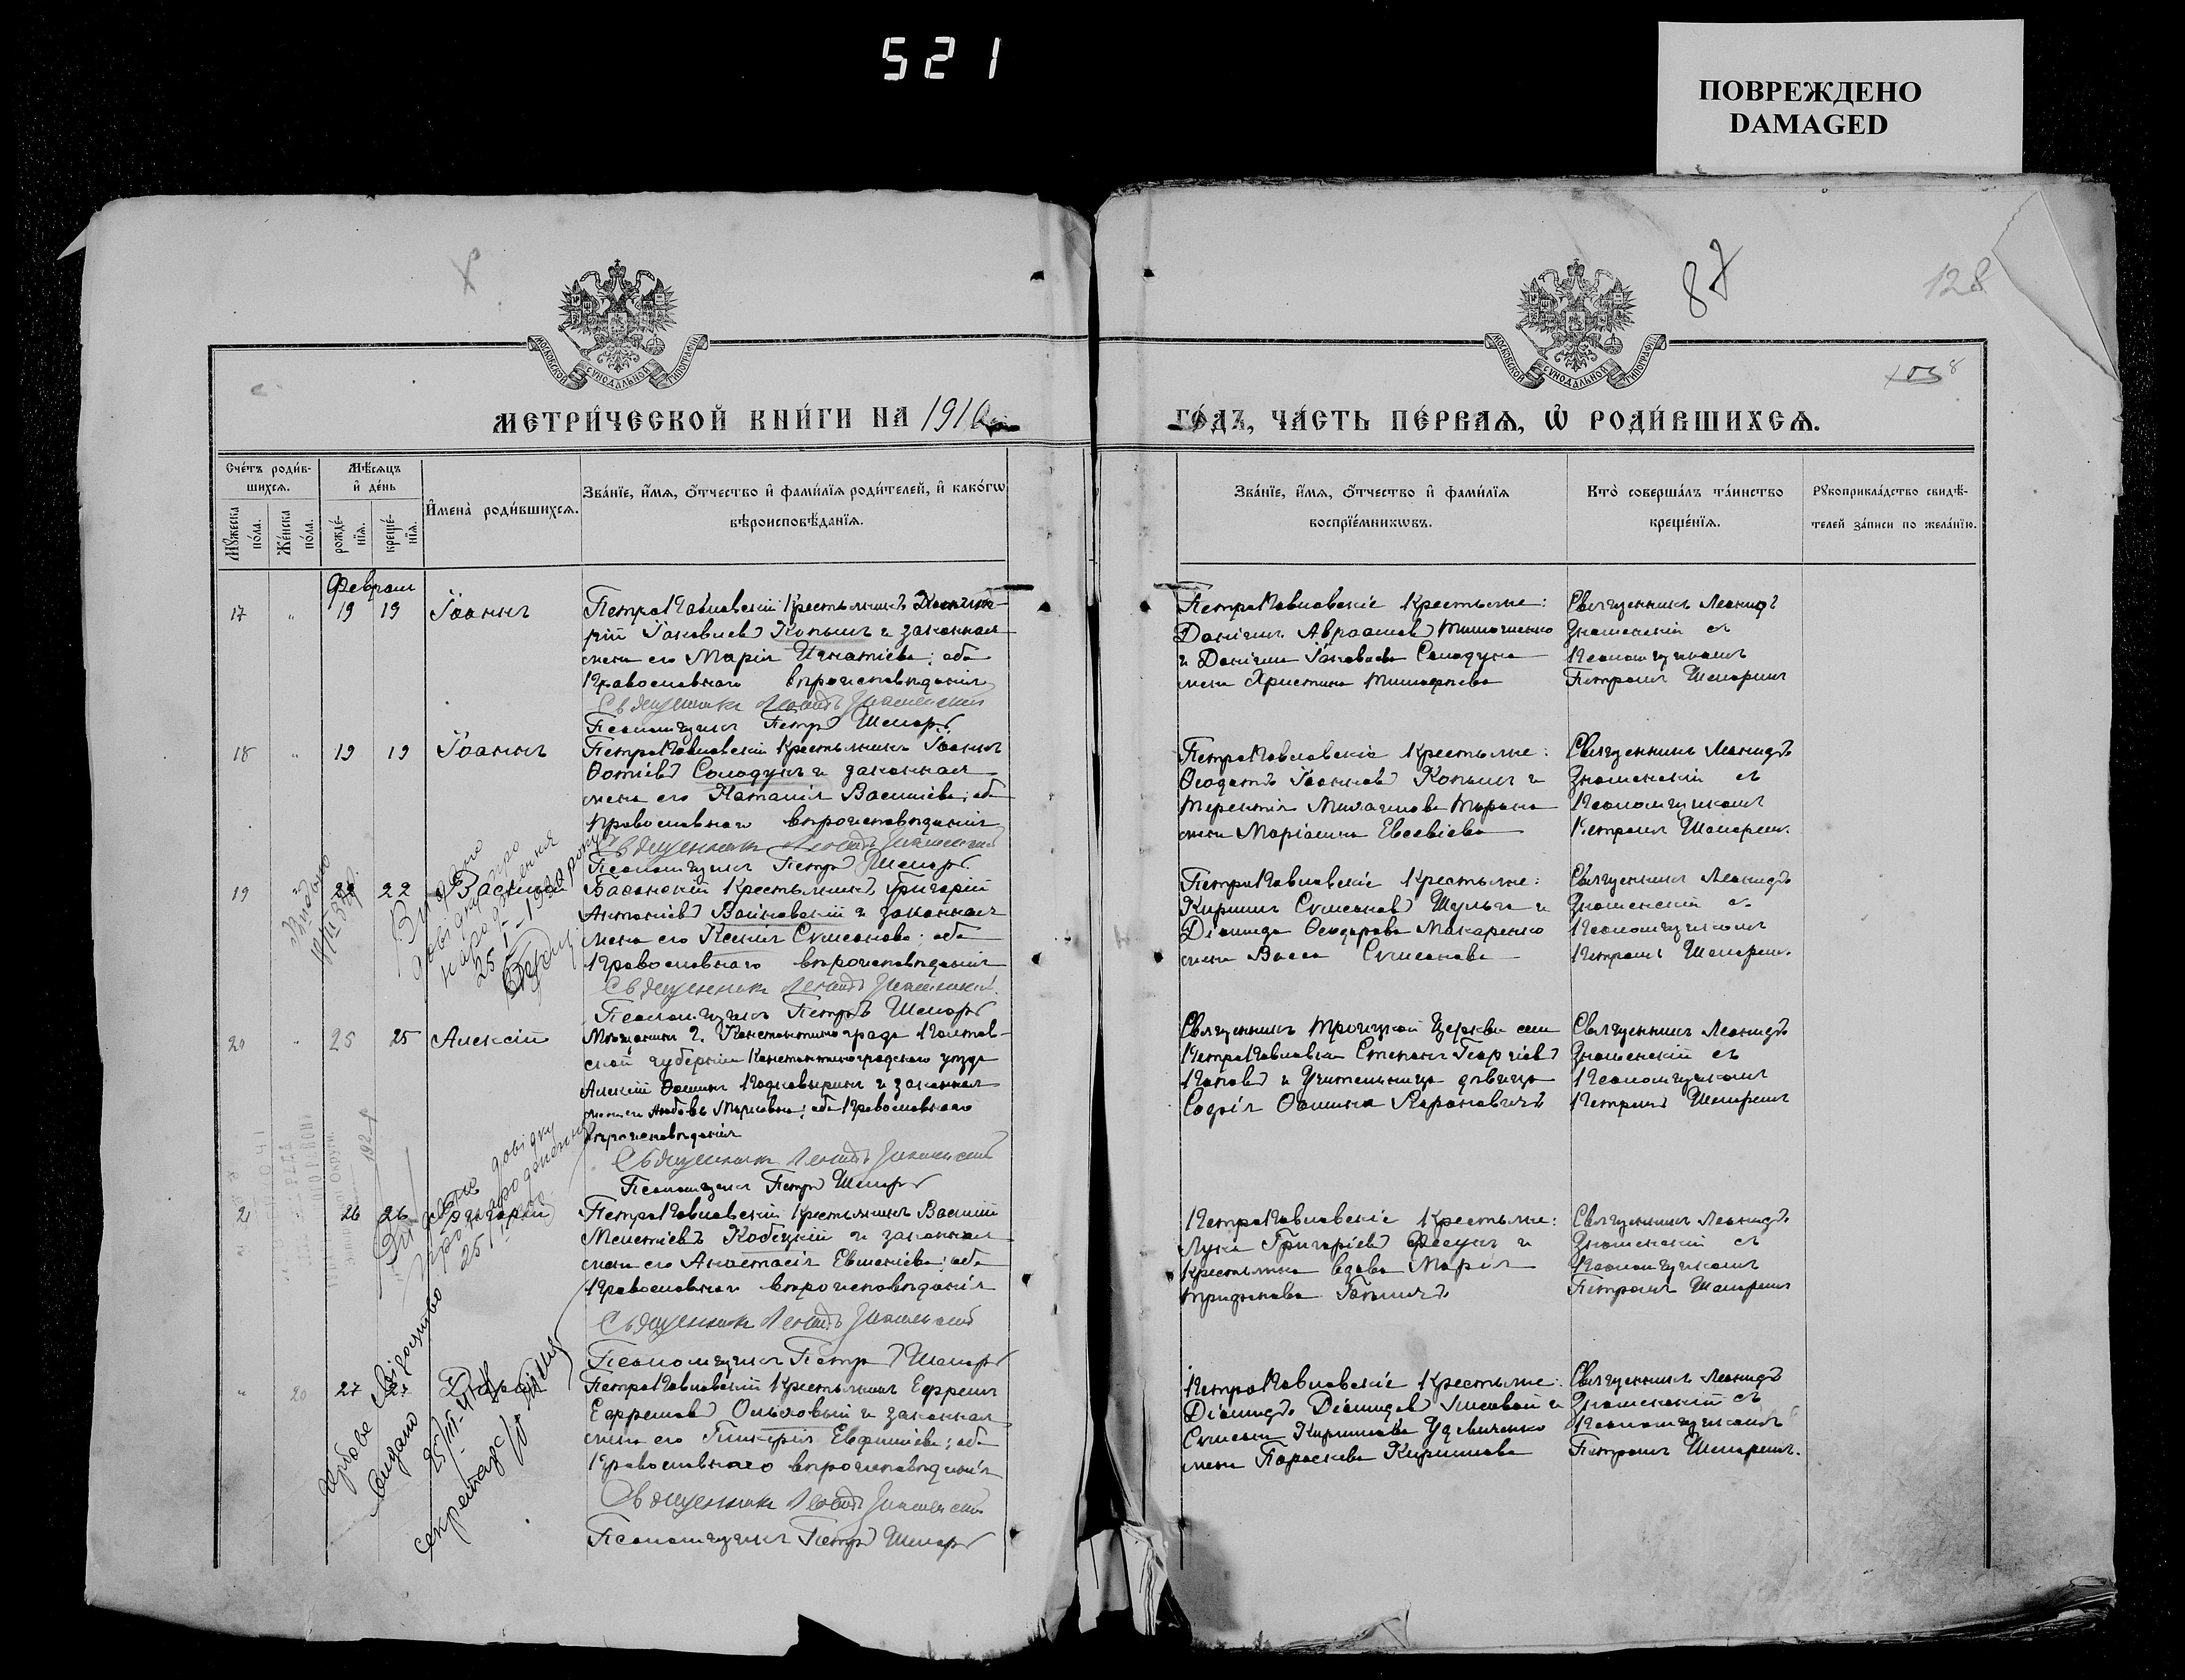 521
ПОВРЕЖДЕНО
DAMAGED
87
128
МОСКОВСКОЙ СѴНОДАЛЬНОЙ ТИПОГРАФІИ
МОСКОВСКОЙ СѴНОДАЛЬНОЙ ТИПОГРАФІИ
МЕТРИ́ЧЕСКОЙ КНИ́ГИ НА 191
ГО́ДЪ, ЧА́СТЬ ПЕ́РВАѦ, Ѡ҆ РОДИ́ВШИХСѦ.
Сче́тъ роди́в-
шихсѧ.
Мѹ́жеска по́ла.
Же́нска по́ла.
Мѣ́сѧцъ
и҆ де́нь
рожде́-
нїѧ.
креще́-
нїѧ.
И҆мена̀ роди́вшихсѧ.
Зва́нїе, и҆́мѧ, ѻ҆́тчество и҆ фами́лїѧ роди́телей, и҆ како́гѡ
вѣроисповѣ́данїѧ.
Зва́нїе, и҆́мѧ, ѻ҆́тчество и҆ фами́лїѧ
воспрїе́мникѡвъ.
Кто̀ соверша́лъ та́инство
креще́нїѧ.
Рѹкоприкла́дство свидѣ́-
телей за́писи по жела́нїю.
Февраль
17 " 19 19 Іоаннъ
ПетроПавловскій Крестьянинъ
Іаковлевъ Копылъ и законная
жена его Марія Игнатіева; оба
Православнаго вѣроисповѣданія
Священникъ Леонидъ Знаменскій
Псаломщикъ Петръ Шепарь
ПетроПавловскіе Крестьяне:
Даніилъ Авраамовъ Тимошенко
и Даніила Іаковлева Солодуна
жена Христина Тимофеева
Священникъ Леонидъ
Знаменскій съ
Псаломщикомъ
Петромъ Шепаремъ
18 " 19 19 Іоаннъ
ПетроПавловскій Крестьянинъ Іоаннъ
Фотіевъ Солодунъ и законная
жена его Наталія Василіева; оба
Православнаго вѣроисповѣданія
Священникъ Леонидъ Знаменскій
Псаломщикъ Петръ Шепарь
ПетроПавловскіе Крестьяне:
Феодотъ Іоанновъ Копылъ и
Терентія Михаилова
жена Маріамна Евсевіева
Священникъ Леонидъ
Знаменскій съ
Псаломщикомъ
Петромъ Шепаремъ.
19 22 Василій
Видано
довідку про
народження
25 I 1929 року
Видано
Григорій
Антоніевъ Войновскій и законная
жена его Ксенія Симеонова; оба
Православнаго вѣроисповѣданія
Священникъ Леонидъ Знаменскій.
Псаломщикъ Петръ Шепарь
ПетроПавловскіе Крестьяне:
Кириллъ Симеоновъ Шульга и
Діомида Феодорова Макаренко
жена Васса Симеонова
Священникъ Леонидъ
Знаменскій съ
Псаломщикомъ
Петромъ Шепаремъ.
20 " 25 25 Алексій
Мѣщанинъ г. Константинограда Полтав-
ской губерніи Константиноградского уѣзда
Алексій Фоминъ и законная
жена его Любовь Маркова; оба Православнаго
вѣроисповѣданія
Священникъ Леонидъ Знаменскій
Псаломщикъ Петръ Шепарь
Священникъ Троицкой Церкви села
ПетроПавловки Стефанъ Георгіевъ
Поповъ и Учительница дѣвица
Софія Фомина
Священникъ Леонидъ
Знаменскій съ
Псаломщикомъ
Петромъ Шепаремъ
21 26 26 Григорій
Видано довідку
про народження
25 I
ПетроПавловскій Крестьянинъ Василій
Мелетіевъ Кобецкій и законная
жена его Анастасія Евменіева; оба
Православнаго вѣроисповѣданія
Священникъ Леонидъ Знаменскій
Псаломщикъ Петръ Шепарь
ПетроПавловскіе Крестьяне:
Лука Григоріевъ Фесунъ и
Крестьянка вдова Марія
Священникъ Леонидъ
Знаменскій съ
Псаломщикомъ
Петромъ Шепаремъ
" 20 27 27
свідоцтво
видано
25/III
секретарь
ПетроПавловскій Крестьянинъ Ефремъ
Ефремовъ Ольховый и законная
жена его Гликерія Евфиміева; оба
Православнаго вѣроисповѣданія
Священникъ Леонидъ Знаменскій
Псаломщикъ Петръ Шепарь
ПетроПавловскіе Крестьяне:
Діомидъ Діомидовъ Лисовой и
Симеона Кириллова Удовиченко
жена Параскева Кириллова
Священникъ Леонидъ
Знаменскій съ
Псаломщикомъ
Петромъ Шепаремъ.